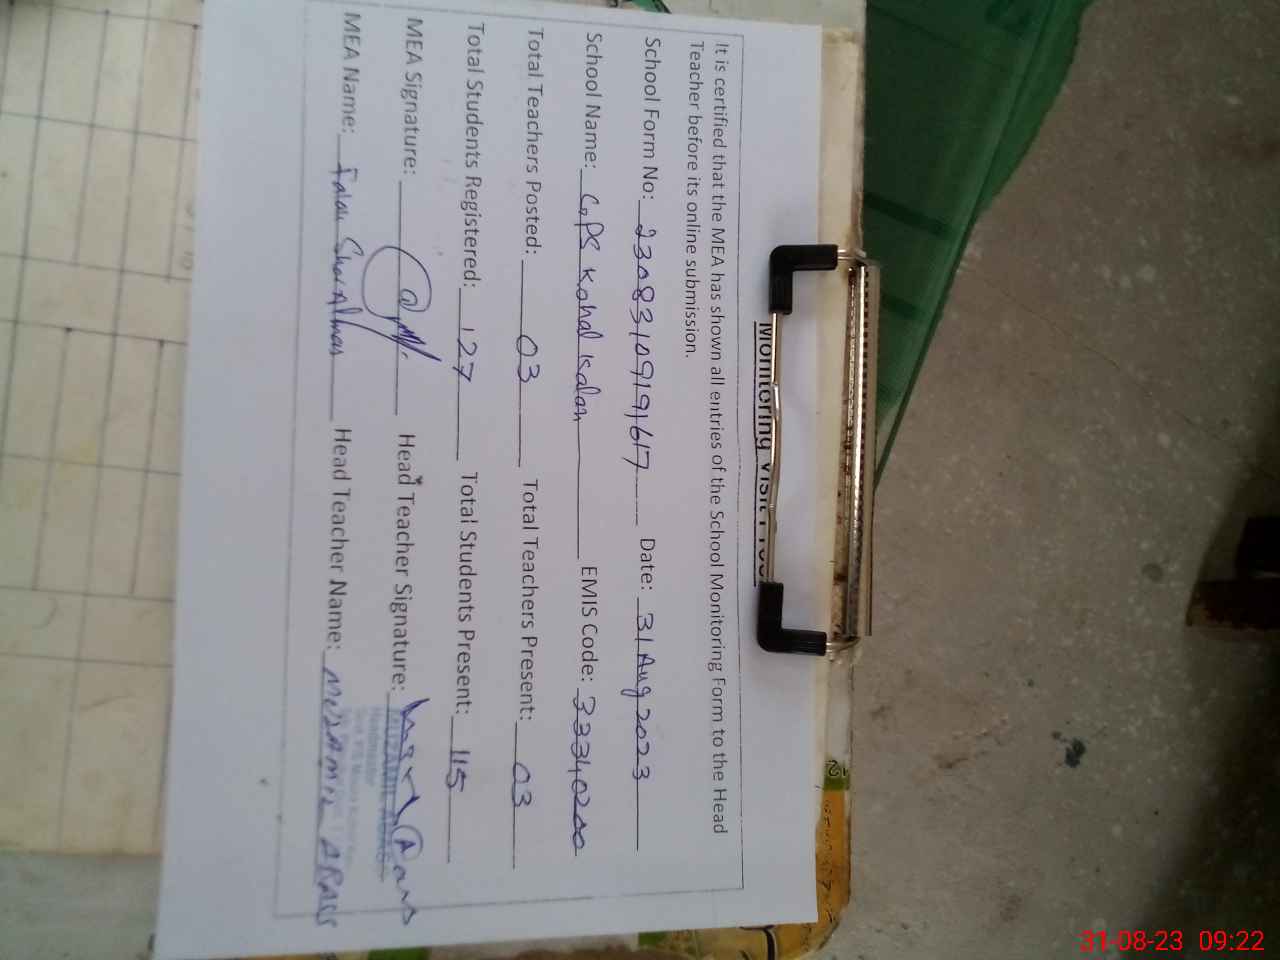 Monitoring Visit
It is certified that the MEA has shown all entries of the School Monitoring Form to the Head
Teacher before its online submission.
School Form No: 230831091919617 Date: 31 Aug 2023
School Name: GPS Kahal Kalan EMIS Code: 33340200
Total Teachers Posted: 03 Total Teachers Present: 03
Total Students Registered: 127 Total Students Present: 115
MEA Signature: Head Teacher Signature:
Headmaster
MEA Name: Head Teacher Name: ABBAS
31-08-23 09:22